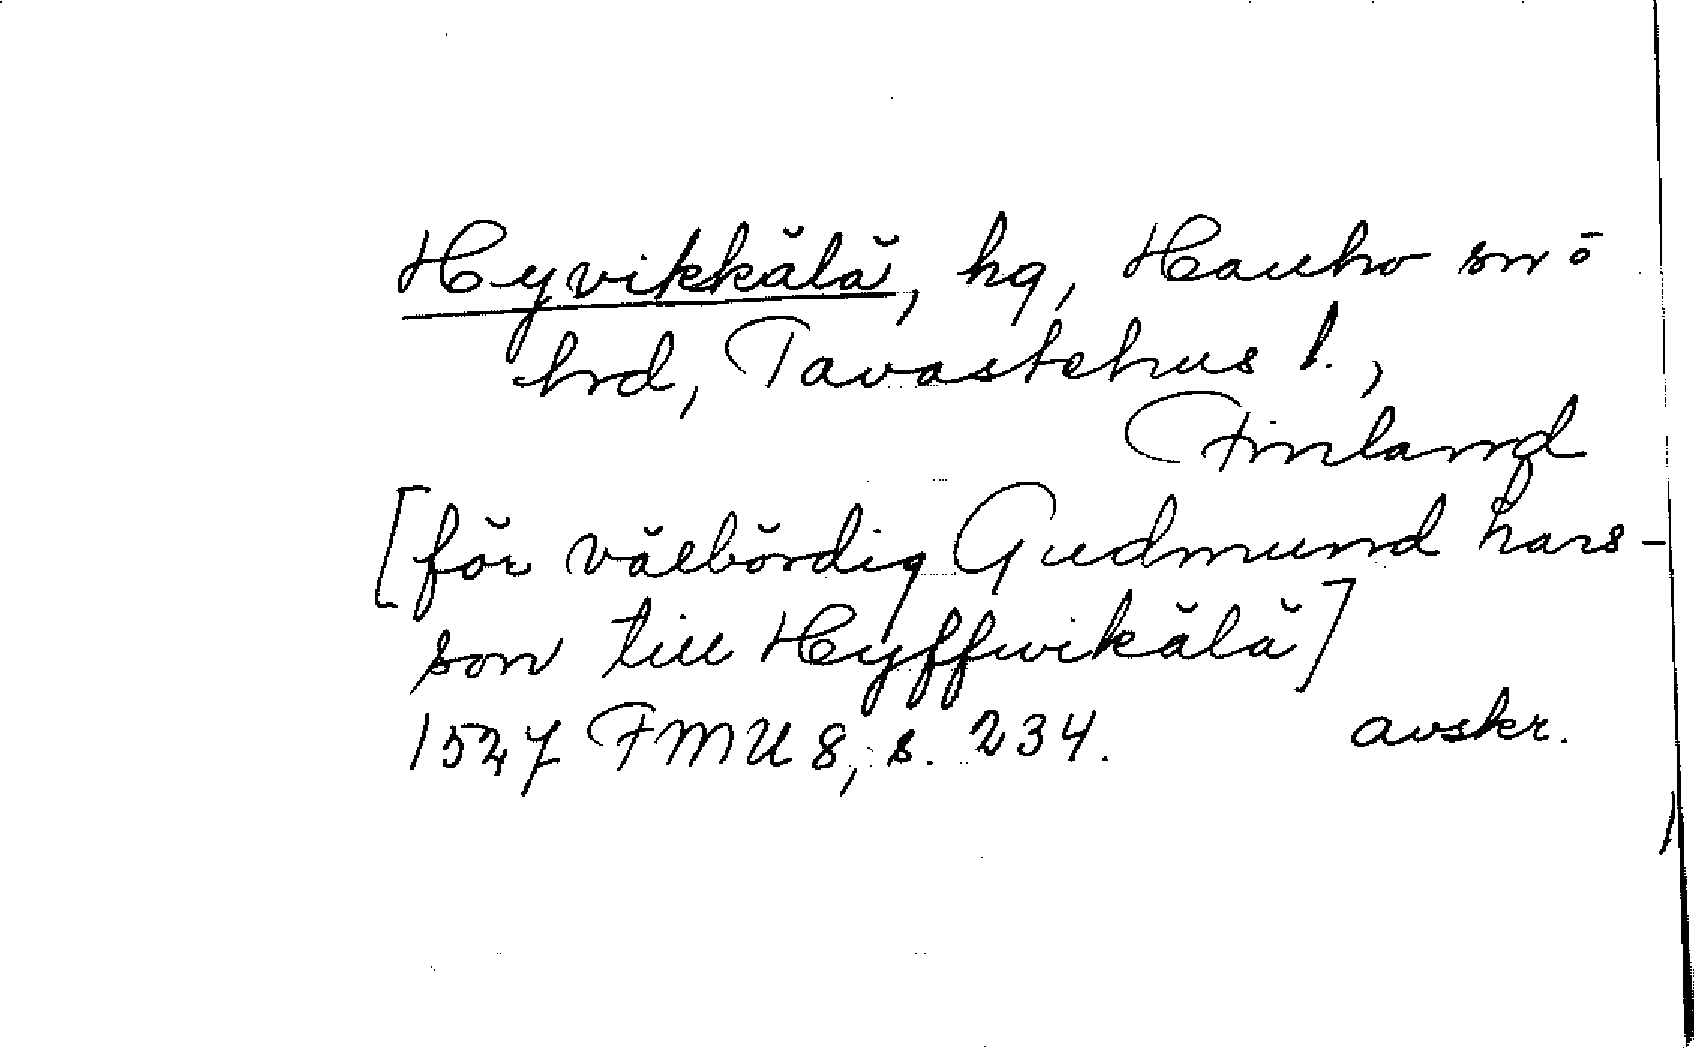 Hyvikkälä, hg, Hauho sn o
hrd, Tavastehus l.,
Finland
[för välbördig Gudmund hans-
son till Hyffwikälä]
1527 FMU 8, s. 234. avskr.